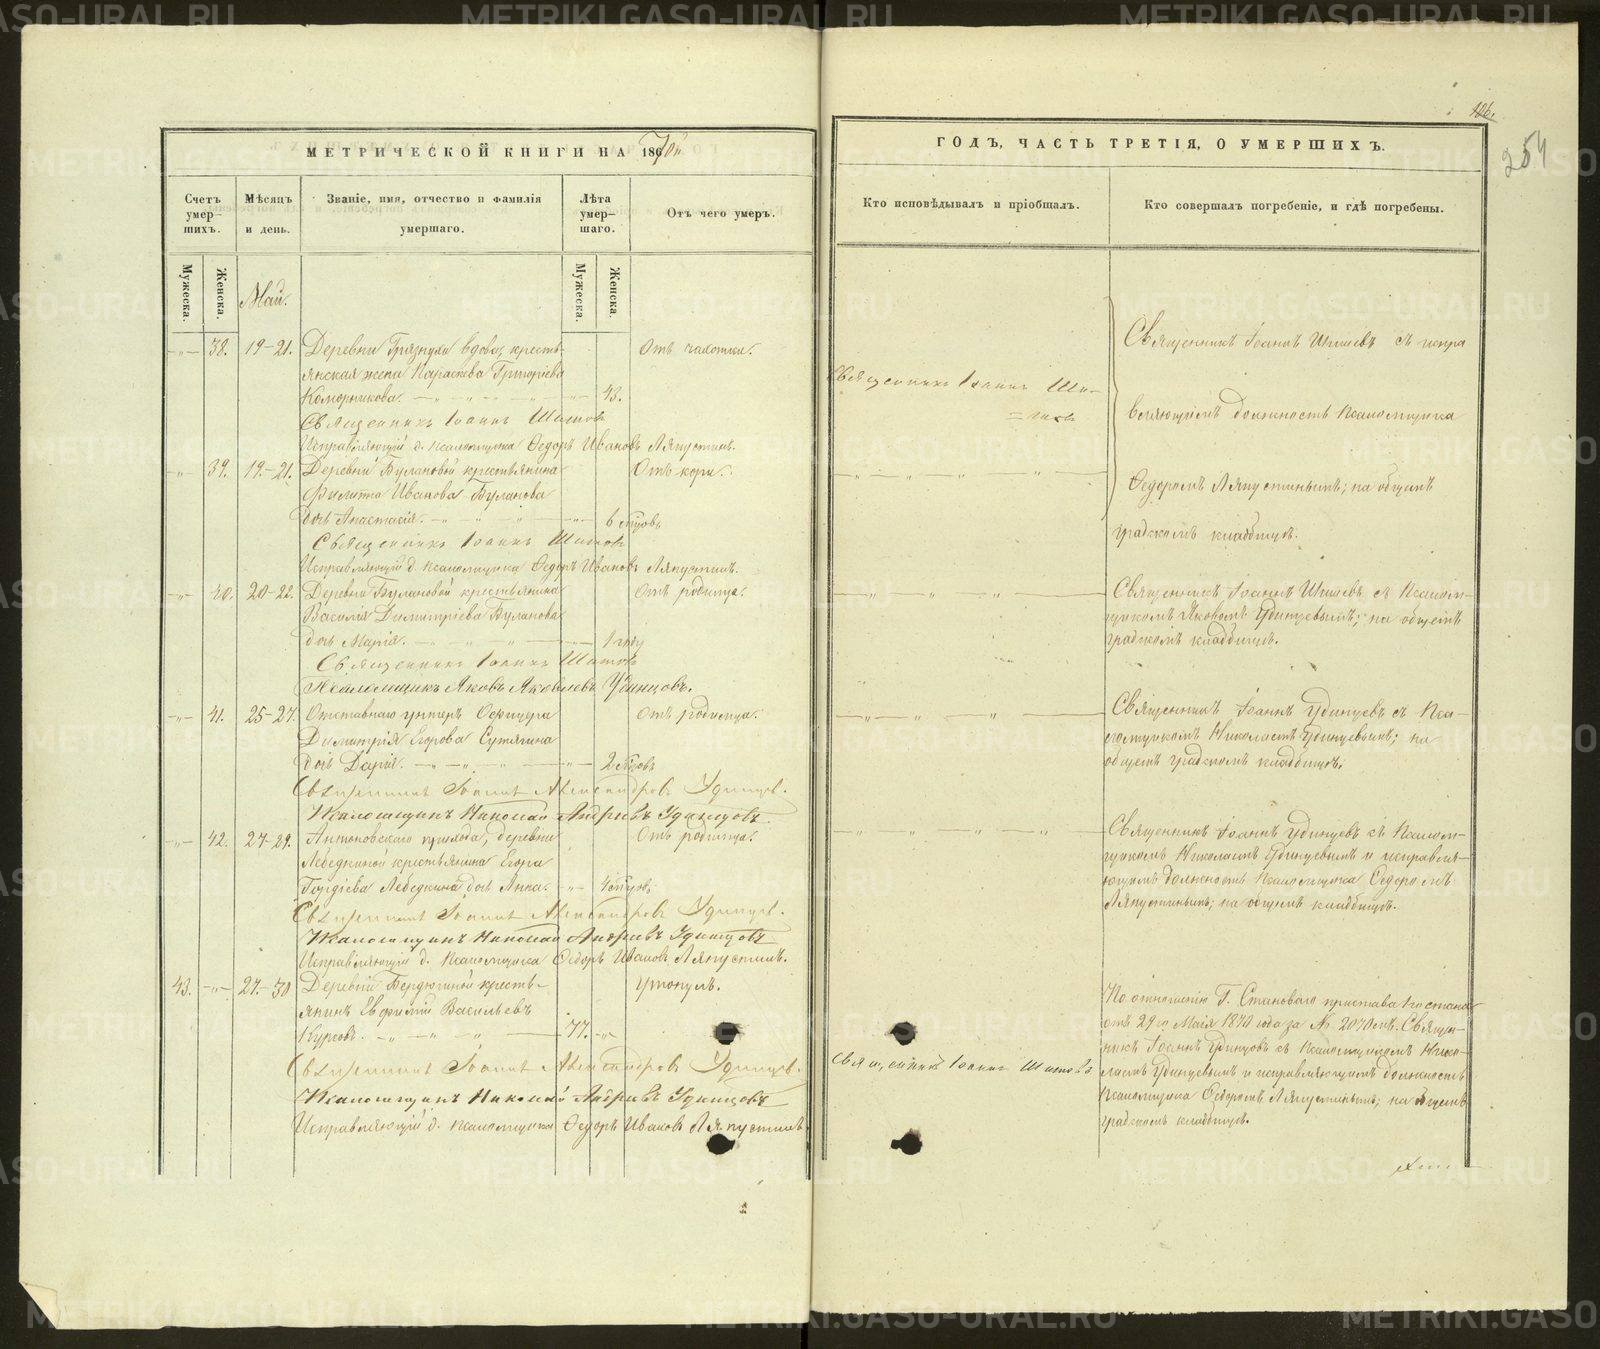 МЕТРИЧЕСКОЙ КНИГИ НА 1870й
Счетъ умер-шихъ.
Мѣсяцъ и день.
Званіе, имя, отчество и фамилія умершаго.
Лѣта умер-шаго.
Отъ чего умеръ.
Мужеска.
Женска.
Май.
Мужеска.
Женска.
38. 19-21. Деревни Грязнухи вдова, кресть- Отъ чахотки.
янская жена Параскева Григоріева
Коморникова. 43.
Священникъ Іоаннъ Шишовъ
Исправляющій д. псаломщика Ѳедоръ Ивановъ Ляпустинъ.
39. 19-21. Деревни Булановой крестьянина Отъ кори.
Филиппа Иванова Буланова
дочь Анастасія. 6 мцовъ
Священникъ Іоаннъ Шишовъ
Исправляющій д. псаломщика Ѳедоръ Ивановъ Ляпустинъ.
40. 20-22. Деревни Булановой крестьянина Отъ родимца.
Василія Димитріева Буланова
дочь Марія. 1 году
Священникъ Іоаннъ Шишовъ
Псаломщикъ Яковъ Яковлевъ Удинцовъ.
41. 25-27. Отставнаго унтеръ Офицера Отъ родимца.
Димитрія Егорова Сутягина
дочь Дарія. 2 мцовъ
Священникъ Іоаннъ Александровъ Удинцовъ.
Псаломщикъ Николай Андреевъ Удинцовъ.
42. 27-29. Антоновскаго прихода, деревни Отъ родимца.
Лебедкиной крестьянина Егора
Гордіева Лебедкина дочь Анна. 4 мцовъ
Священникъ Іоаннъ Александровъ Удинцовъ.
Псаломщикъ Николай Андреевъ Удинцовъ
Исправляющій д. псаломщика Ѳедоръ Ивановъ Ляпустинъ.
43. 27-30 Деревни Бердюгиной кресть- Утонулъ.
янинъ Евфимій Васильевъ
77.
Священникъ Іоаннъ Александровъ Удинцовъ.
Псаломщикъ Николай Андреевъ Удинцовъ
Исправляющій д. псаломщика Ѳедоръ Ивановъ Ляпустинъ
126.
254
ГОДЪ, ЧАСТЬ ТРЕТІЯ, О УМЕРШИХЪ.
Кто исповѣдывалъ и пріобщалъ.
Кто совершалъ погребеніе, и гдѣ погребены.
Священникъ Іоаннъ Ши-
=шовъ
Священникъ Іоаннъ Шишевъ съ испра
вляющимъ должность псаломщика
Ѳедоромъ Ляпустинымъ; на общемъ
градскомъ кладбищѣ.
Священникъ Іоаннъ Шишевъ съ Псалом-
щикомъ Яковомъ Удинцевымъ; на общемъ
градскомъ кладбищѣ.
Священникъ Іоаннъ Удинцевъ съ Пса-
ломщикомъ Николаемъ Удинцевымъ; на
общемъ градскомъ кладбищѣ.
Священникъ Іоаннъ Удинцевъ съ Псалом-
щикомъ Николаемъ Удинцевымъ и исправля-
ющимъ должность Псаломщика Ѳедоромъ
Ляпустинымъ; на общемъ кладбищѣ.
Священникъ Іоаннъ Шишовъ
По отношенію Г. Становаго пристава 1го стана
отъ 29го Маія 1870 года за № 2070мъ. Священ-
никъ Іоаннъ Удинцовъ съ Псаломщикомъ Нико-
лаемъ Удинцевымъ и исправляющимъ должность
Псаломщика Ѳедоромъ Ляпустинымъ; на общемъ
градскомъ кладбищѣ.
METRIKI.GASO-URAL.RU